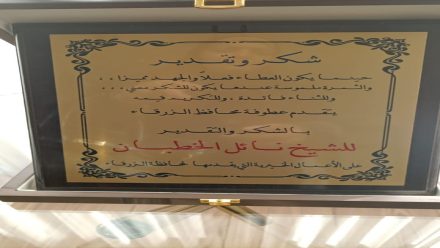 شكر وتقدير
حينما يكون العطاء فعلاً والجهد مميزا،،
والثمرة ملموسة عندها يكون للشكر معنى،،،
وللثناء فائدة، وللتكريم قيمه
يتقدم عطوفة محافظ الزرقاء
بالشكر والتقدير
للشيخ نائل الخطبان
على الأعمال الخيرية التي يقدمها لمحافظة الزرقاء